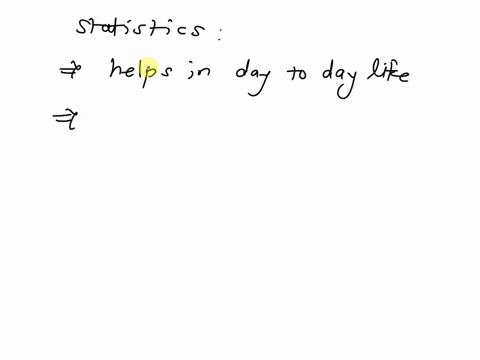 statistics :
⇒ helps in day to day life
⇒